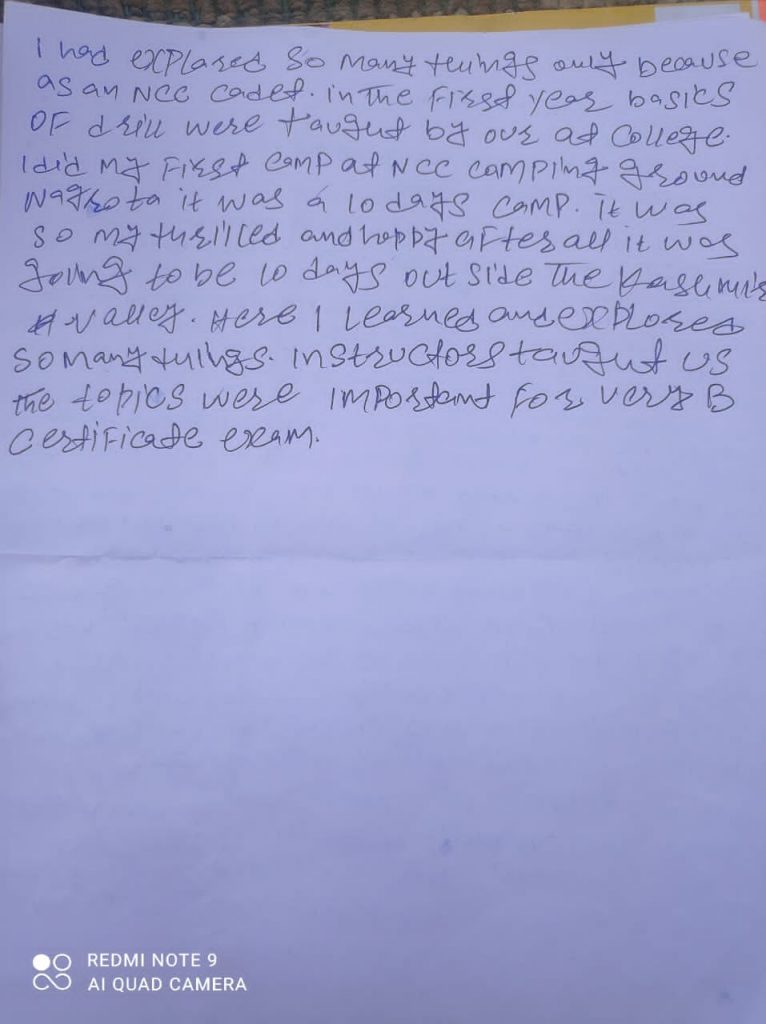 I had explared so many things only because
as an NCC cadet. in the first year basics
OF drill were taught by our at College.
I did my first camp at NCC camping ground
Nagrota it was a 10 days camp. it was
so my thrilled and happy after all it was
going to be 10 days out side The Kashmir
valley. Here I learned and explored
so many things. instructors taught us
the topics were important for very B
certificate exam.
REDMI NOTE 9
AI QUAD CAMERA